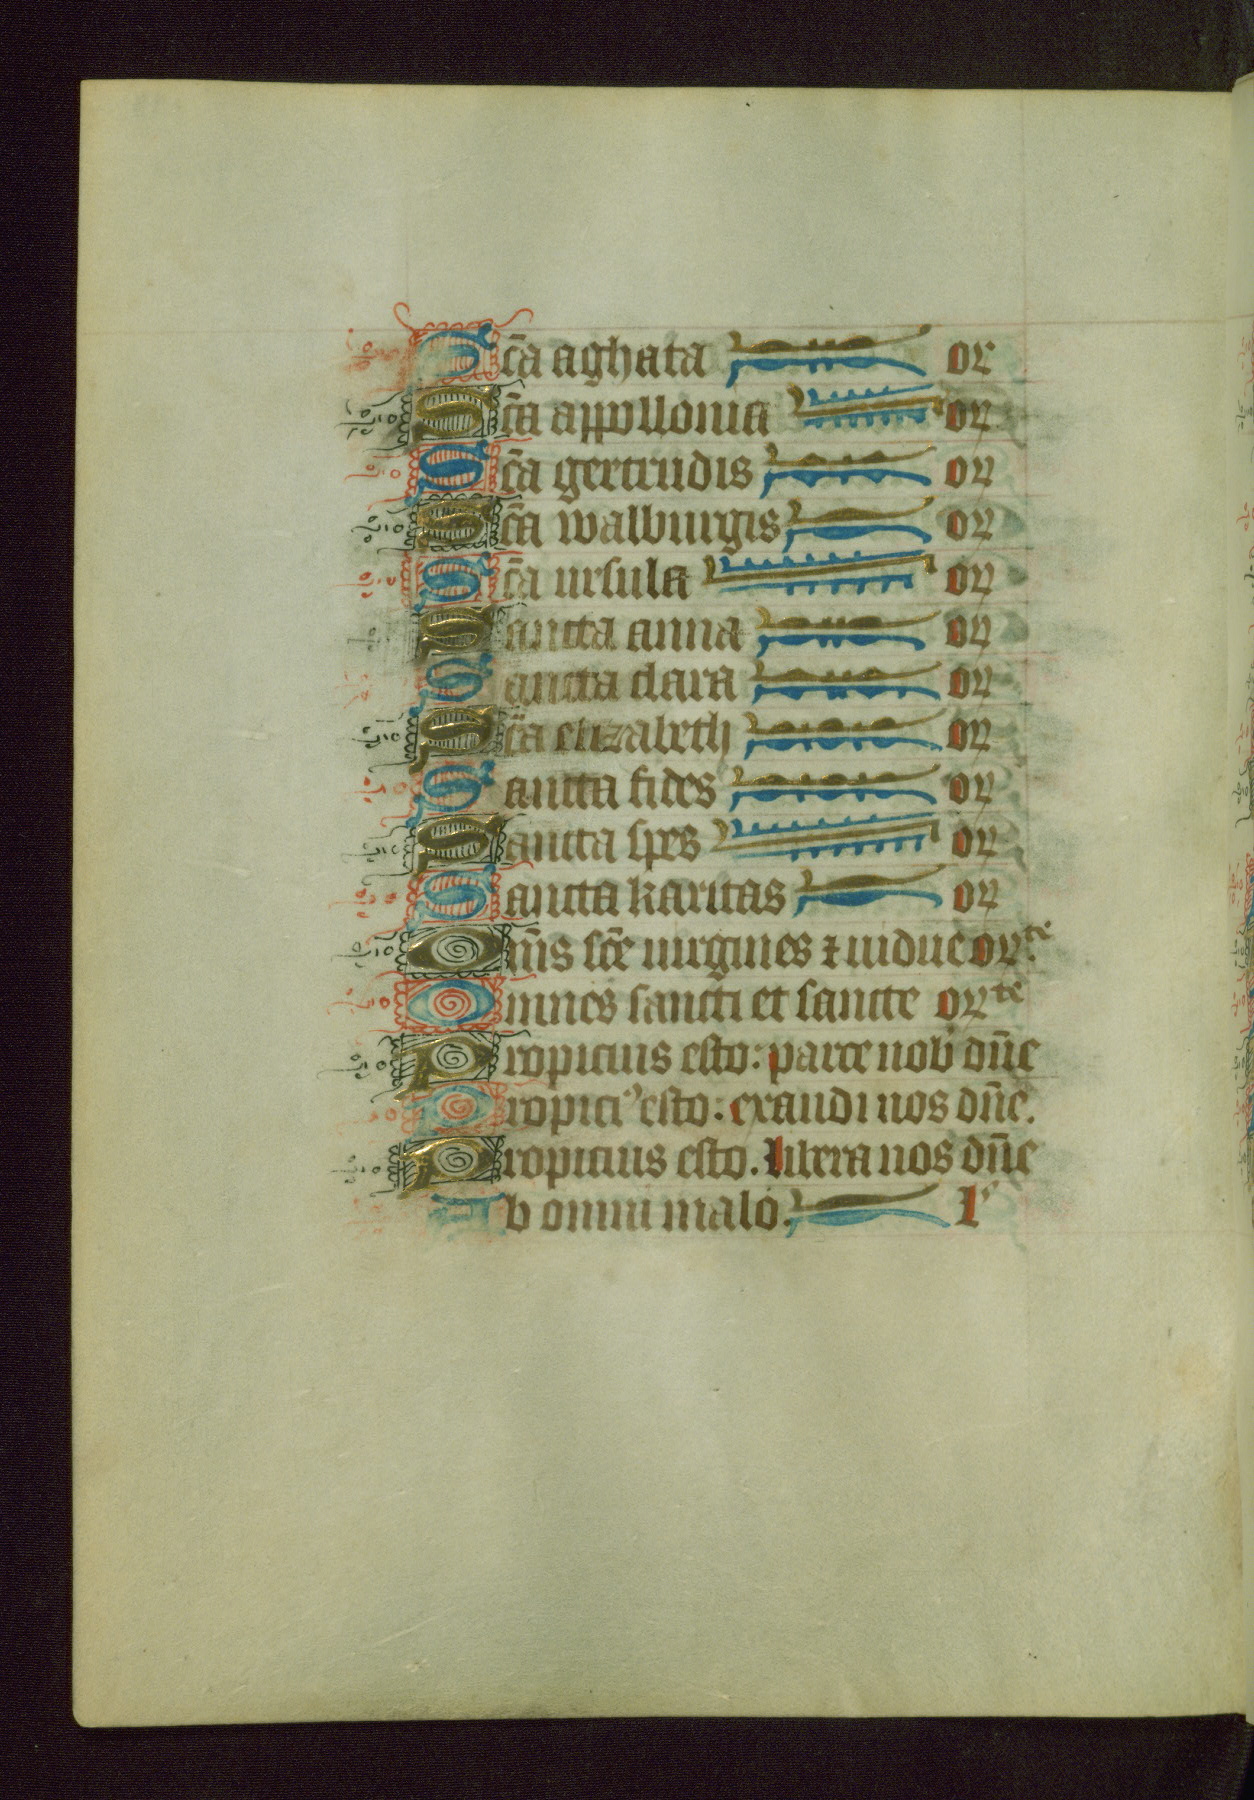 Sc̄a aghata or
Sc̄a appollonia or
Sc̄a gertrudis or
Sc̄a walburgis or
Sc̄a ursula or
Sancta anna or
Sancta clara or
Sc̄a elizabeth or
Sancta fides or
Sancta spes or
Sancta karitas or
Om̄s sc̄e uirgines ⁊ uidue or.te
Omnes sancti et sancte orte
Propicius esto: parce nob dn̄e
Propici⁹ esto: exaudi nos dn̄e.
Propicius esto. libera nos dn̄e
Ab omni malo. l'